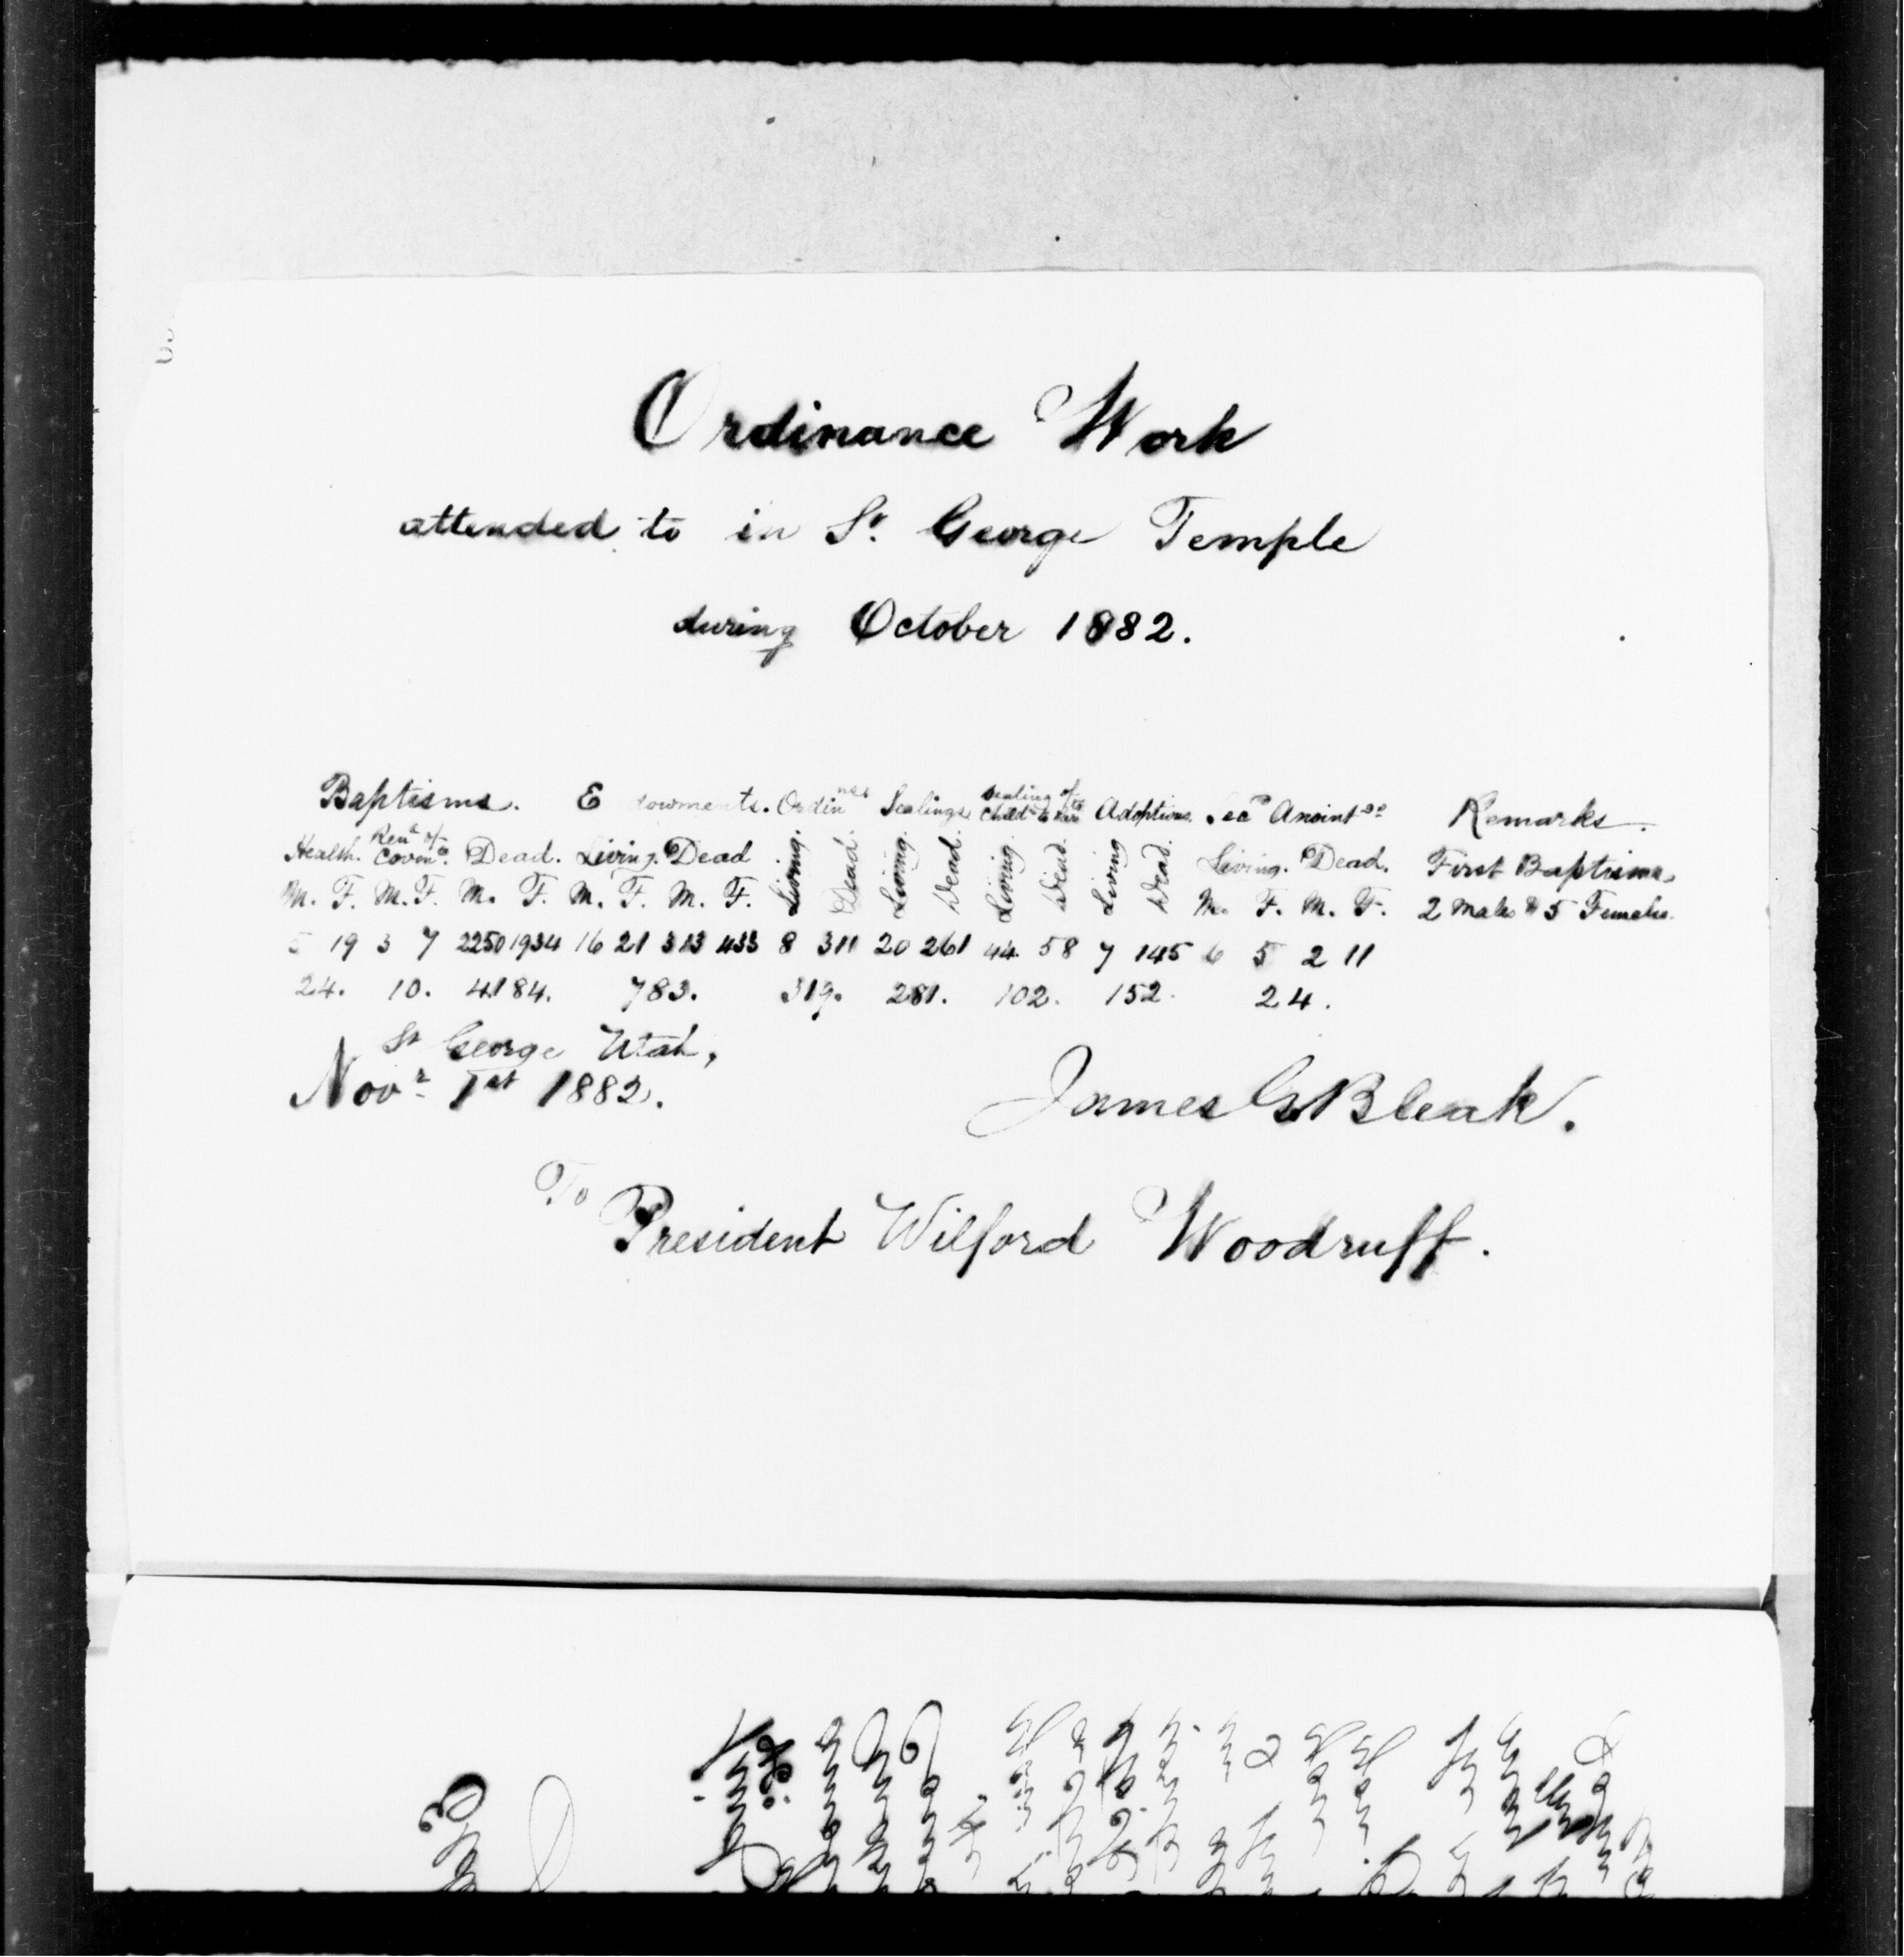 Ordinance Work
attended to in St. George Temple
during October 1882.
Baptisms. Endowments. Ordinncs Sealings Sealing of Childn to Pars Adoptions. Secd Anointgs Remarks.
Health. Renl of Covents. Dead. Living. Dead. Living. Dead. Living. Dead. Living Dead. Living Dead. Living. Dead. First Baptisms,
M. F. M. F. M. F. M. F. M. F. M. F. M. F. 2 Males & 5 Females.
5 19 3 7 2250 1934 16 21 313 433 8 311 20 261 44 58 7 145 6 5 2 11
24. 10. 4184. 783. 319. 281. 102. 152. 24.
St George Utah,
Novr 1st 1882.
James G Bleak.
To
President Wilford Woodruff.